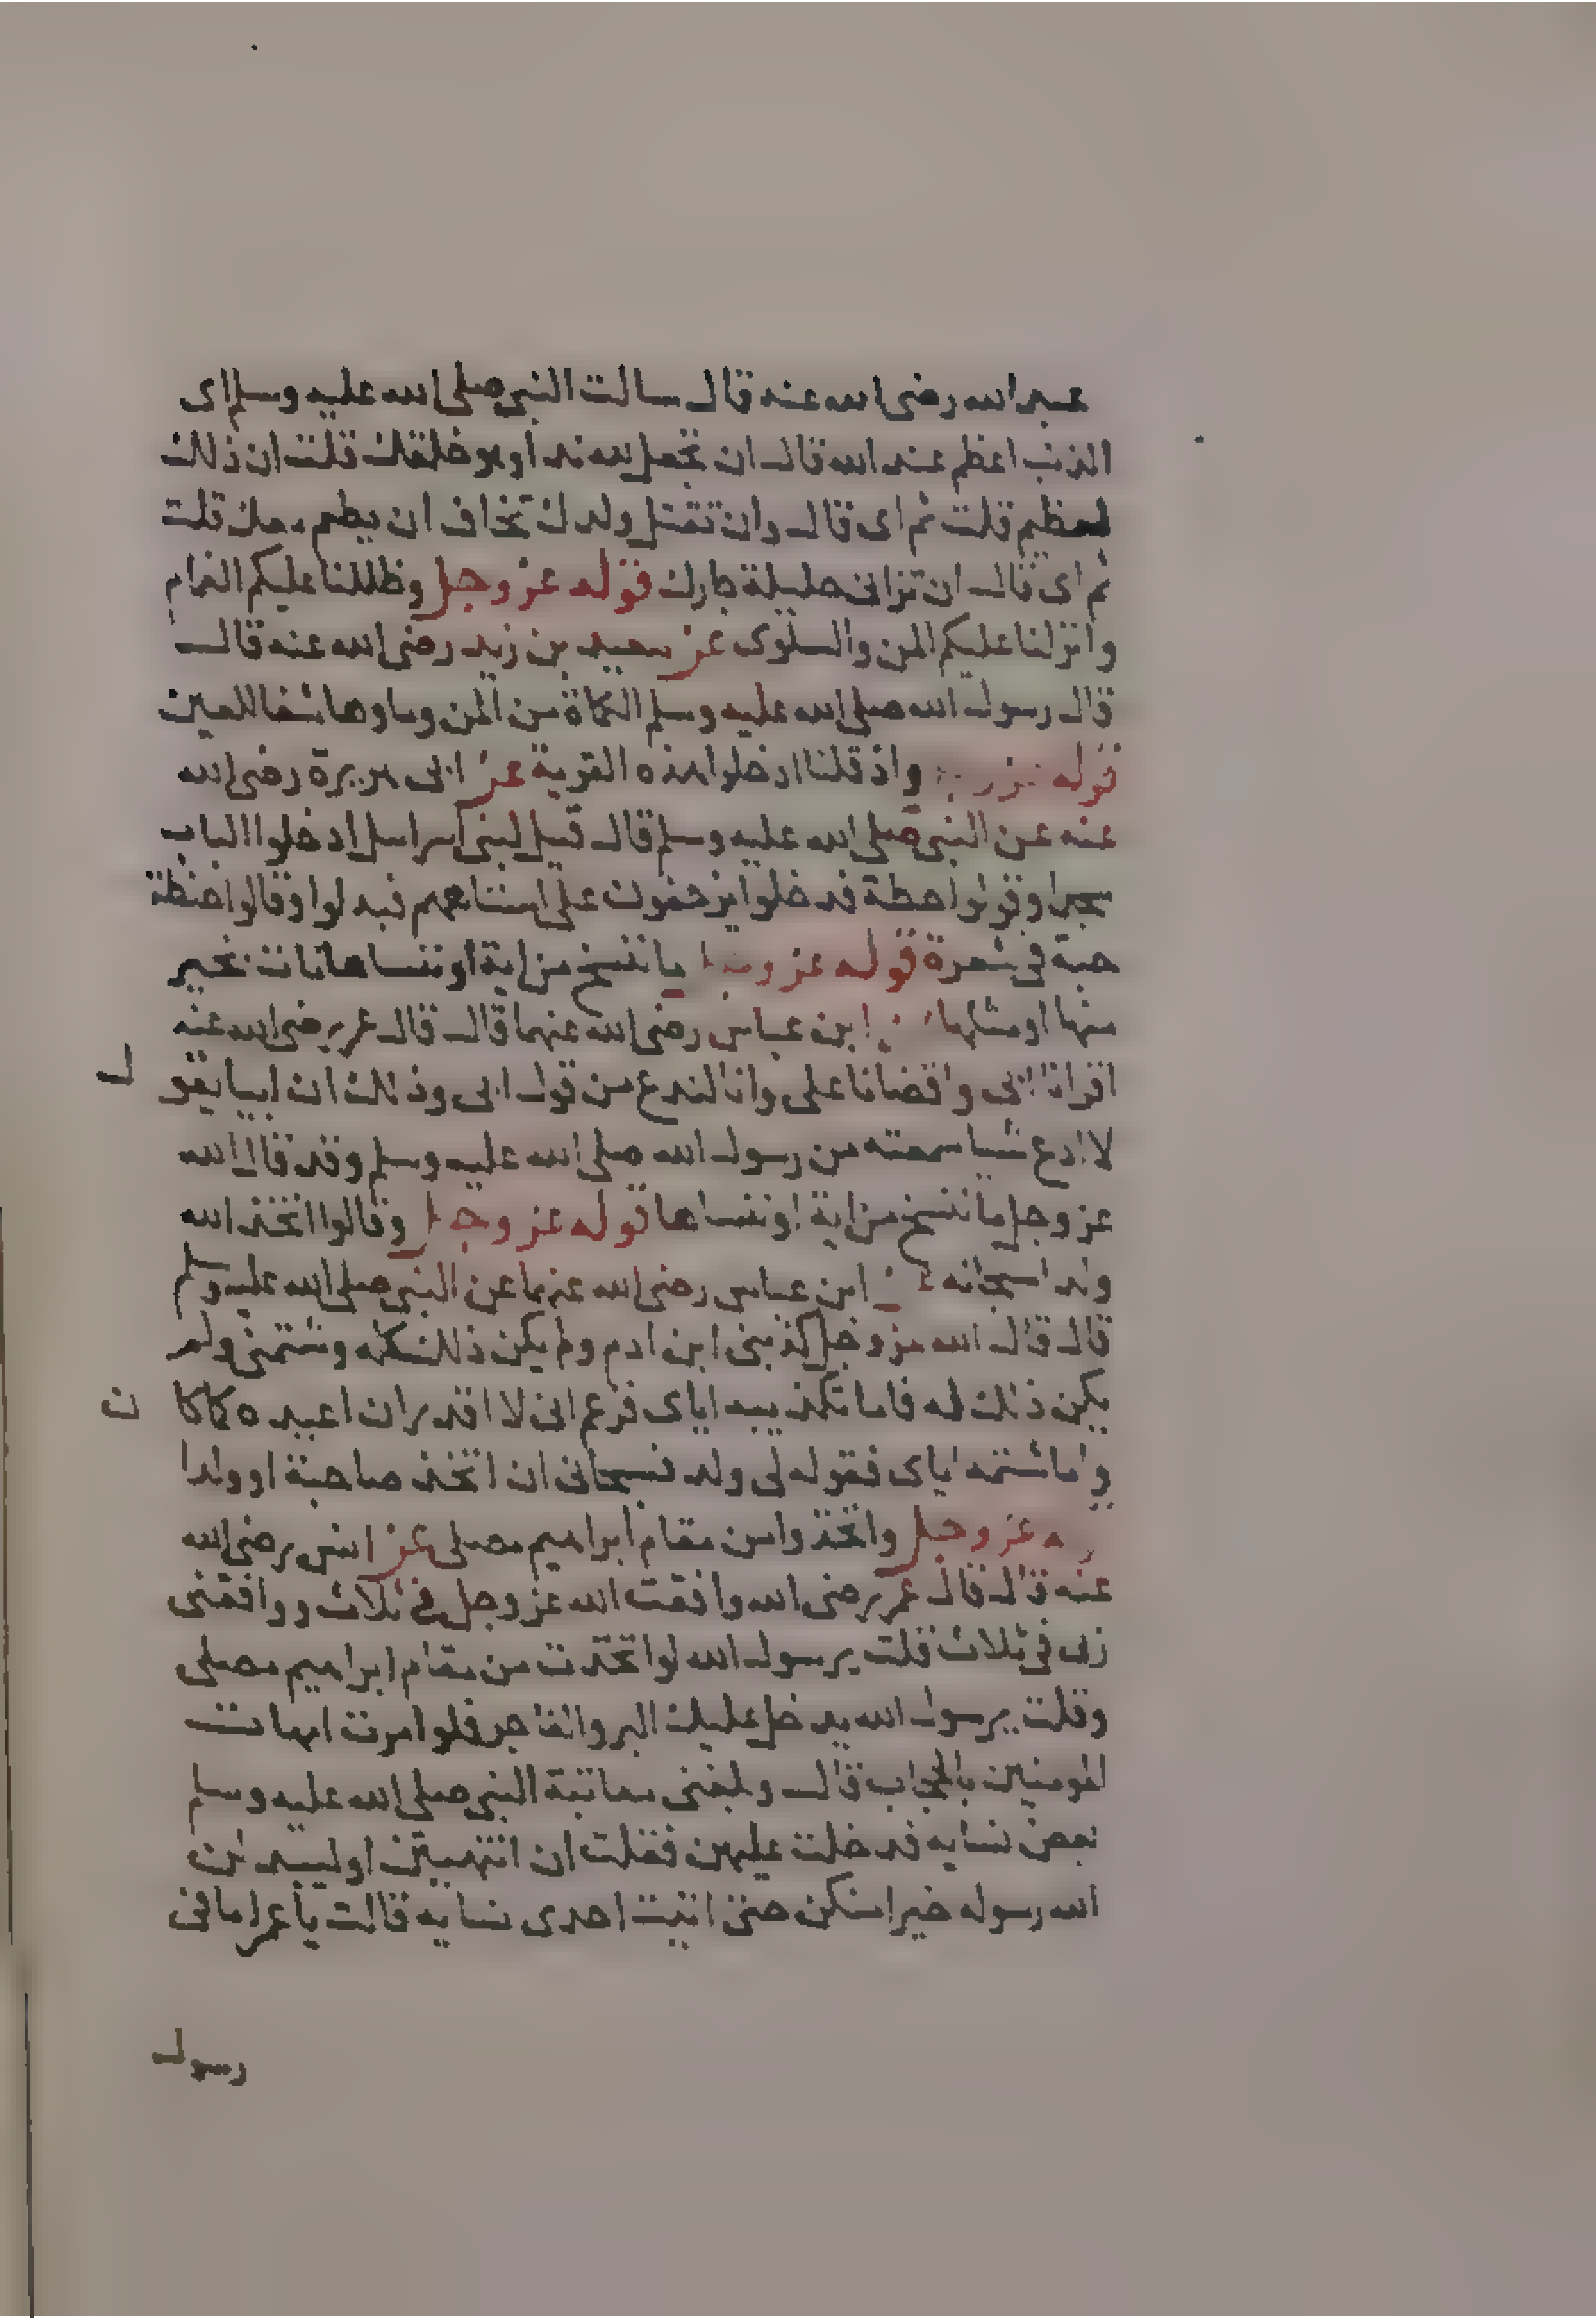 عبد الله رضى الله عنه قال سالت النبى صلى الله عليه وسلم اى
الذنب اعظم عند الله قال ان تجعل لله ندا وهو خلقك قلت ان ذلك
لعظيم قلت ثم اى قال وان تقتل ولدك تخاف ان يطعم معك قلت
ثم اى قال ان تزانى حليلة جارك قوله عز وجل وظللنا عليكم الغمام
وانزلنا عليكم المن والسلوى عن سعيد بن زيد رضى الله عنه قال
قال رسول الله صلى الله عليه وسلم الكماة من المن وماوها شفا للعين
قوله عز وجل واذ قلنا ادخلوا هذه القرية عن ابى هريرة رضى الله
عنه عن النبى صلى الله عليه وسلم قال قيل لبنى اسرايل ادخلوا الباب
سجدا وقولوا حطة فدخلوا يزحفون على استاههم فبدلوا وقالوا حنطة
حبة فى شعرة قوله عز وجل ما ننسخ من اية او ننساها نات بخير
منها او مثلها عن ابن عباس رضى الله عنهما قال قال عمر رضى الله عنه
اقرانا ابى واقضانا على وانا لندع من قول ابى وذلك ان ابيا يقو
ل
لا ادع شيا سمعته من رسول الله صلى الله عليه وسلم وقد قال الله
عز وجل ما ننسخ من اية او ننساها قوله عز وجل وقالوا اتخذ الله
ولدا سبحانه عن ابن عباس رضى الله عنهما عن النبى صلى الله عليه وسلم
قال قال الله عز وجل كذبنى ابن ادم ولم يكن ذلك له وشتمنى ولم
يكن ذلك له فاما تكذيبه اياى فزعم انى لا اقدر ان اعيده كما كا
ن
واما شتمه اياى فقوله لى ولد فسبحانى ان اتخذ صاحبة او ولدا
قوله عز وجل واتخذوا من مقام ابراهيم مصلى عن انس رضى الله
عنه قال قال عمر رضى الله وافقت الله عز وجل فى ثلاث ووافقنى
ربى فى ثلاث قلت يرسول الله لو اتخذت من مقام ابراهيم مصلى
وقلت يرسول الله يدخل عليك البر والفاجر فلو امرت امهات
المومنين بالحجاب قال وبلغنى معاتبة النبى صلى الله عليه وسلم
بعض نسايه فدخلت عليهن فقلت ان انتهيتن او ليبدلن
الله رسوله خيرا منكن حتى اتيت احدى نسايه قالت يا عمر اما فى
رسول